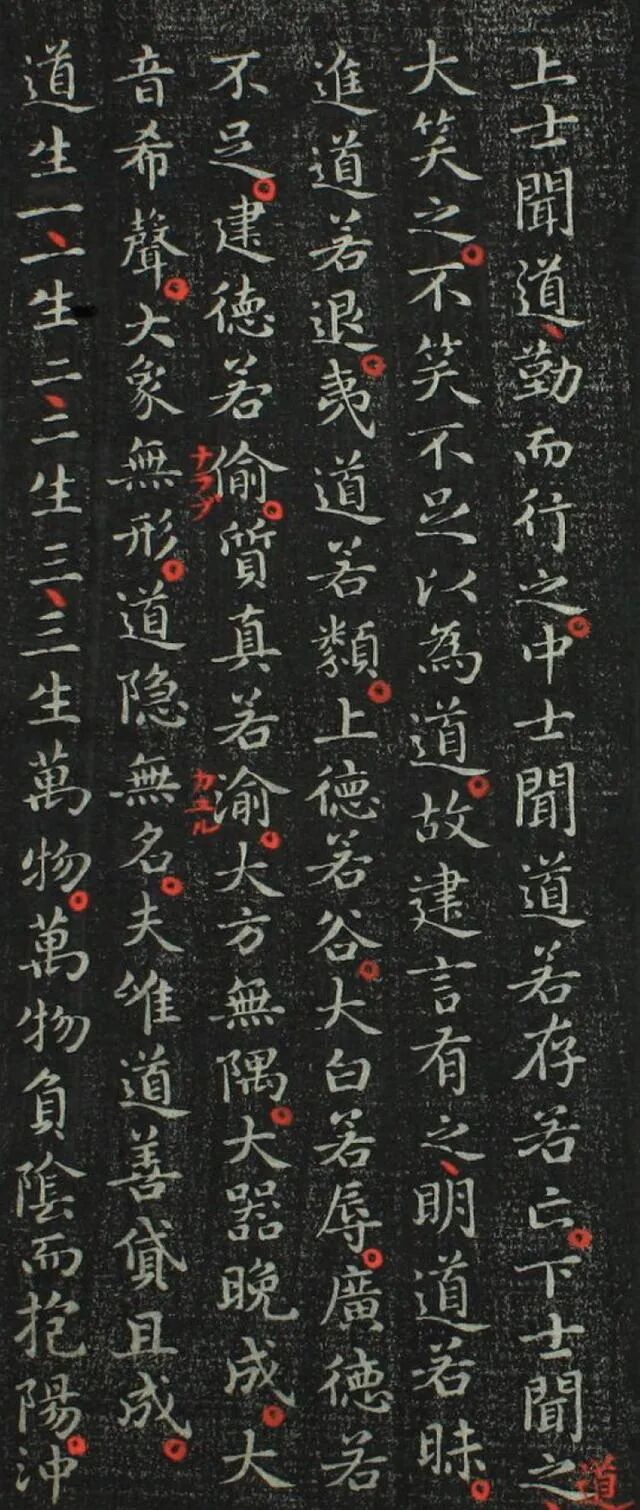 上士聞道、勤而行之。中士聞道若存若亡。下士聞之道
大笑之。不笑不足以為道。故建言有之、明道若昧。
進道若退。夷道若纇。上德若谷。大白若辱。廣德若
不足。建德若偷。質真若渝。大方無隅。大器晚成。大
ナラブ
カユル
音希聲。大象無形。道隐無名。夫唯道善貸且成。
道生一、一生二、二生三、三生萬物。萬物負陰而抱陽。沖